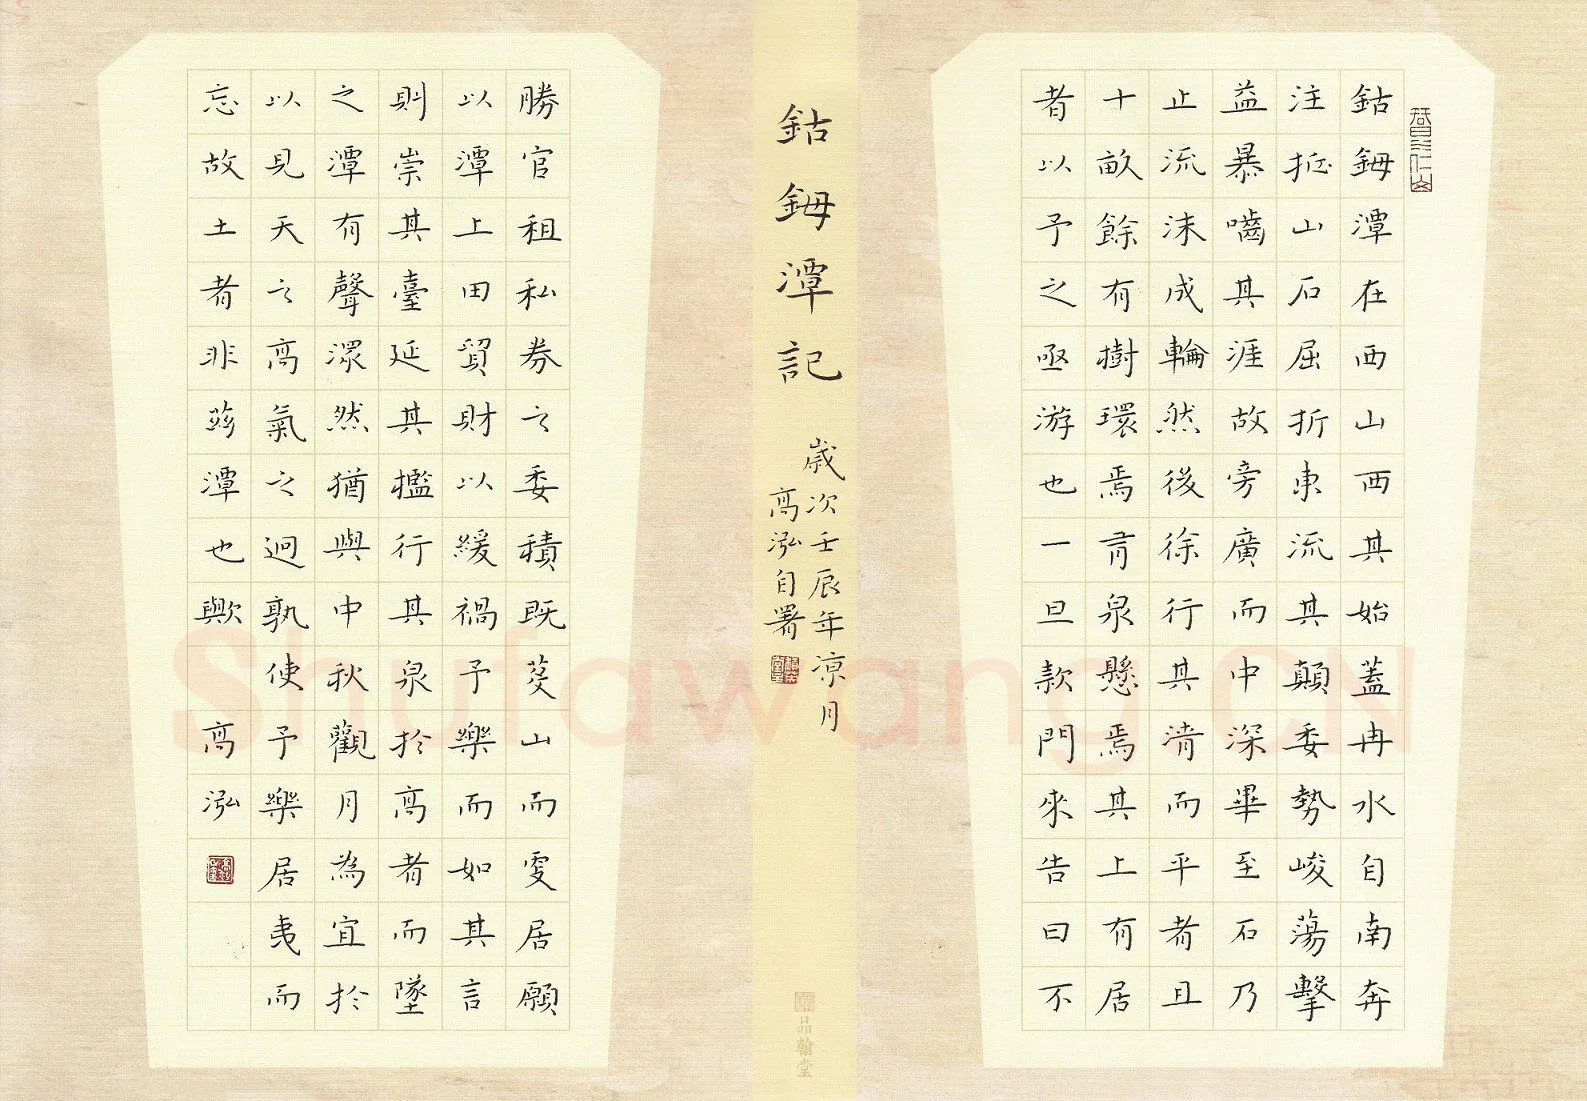 鈷鉧潭在西山西其始蓋冉水自南奔
注抵山石屈折東流其顛委勢峻蕩擊
益暴嚙其涯故旁廣而中深畢至石乃
止流沫成輪然後徐行其清而平者且
十畝餘有樹環焉有泉懸焉其上有居
者以予之亟游也一旦款門來告曰不
鈷鉧潭記
歲次壬辰年涼月
高泓自署
品翰堂
勝官租私券之委積既芟山而更居願
以潭上田貿財以緩禍予樂而如其言
則崇其臺延其檻行其泉於高者而墜
之潭有聲潀然猶與中秋觀月為宜於
以見天之高氣之迥孰使予樂居夷而
忘故土者非茲潭也歟 高泓
Shufawang.CN